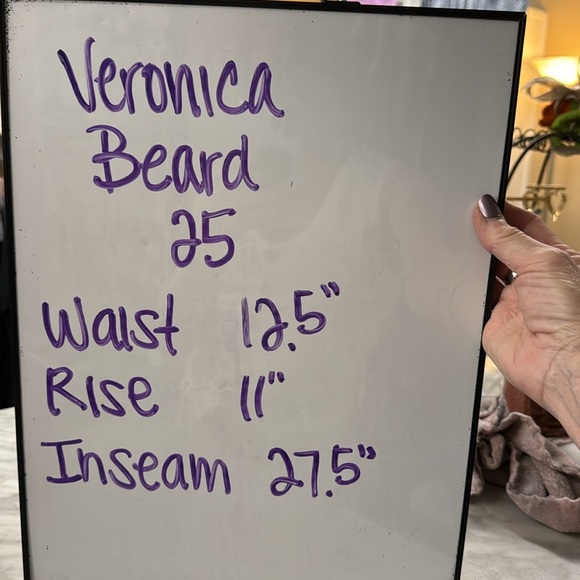 Veronica
Beard
25
Waist 12.5"
Rise 11"
Inseam 27.5"